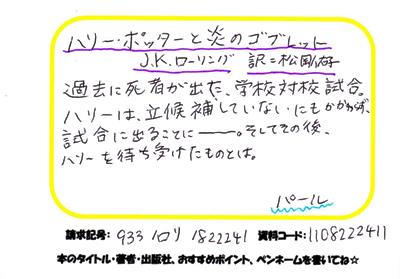 ハリー・ポッターと炎のゴブレット
J.K.ローリング 訳=松岡佑子
過去に死者が出た、学校対校試合。
ハリーは、立候補していないにもかかわらず、
試合に出ることに――。そしてその後、
ハリーを待ち受けたものとは。
パール
請求記号: 933 ﾛﾘ 1822241 資料コード: 1108222411
本のタイトル・著者・出版社、おすすめポイント、ペンネームを書いてね☆